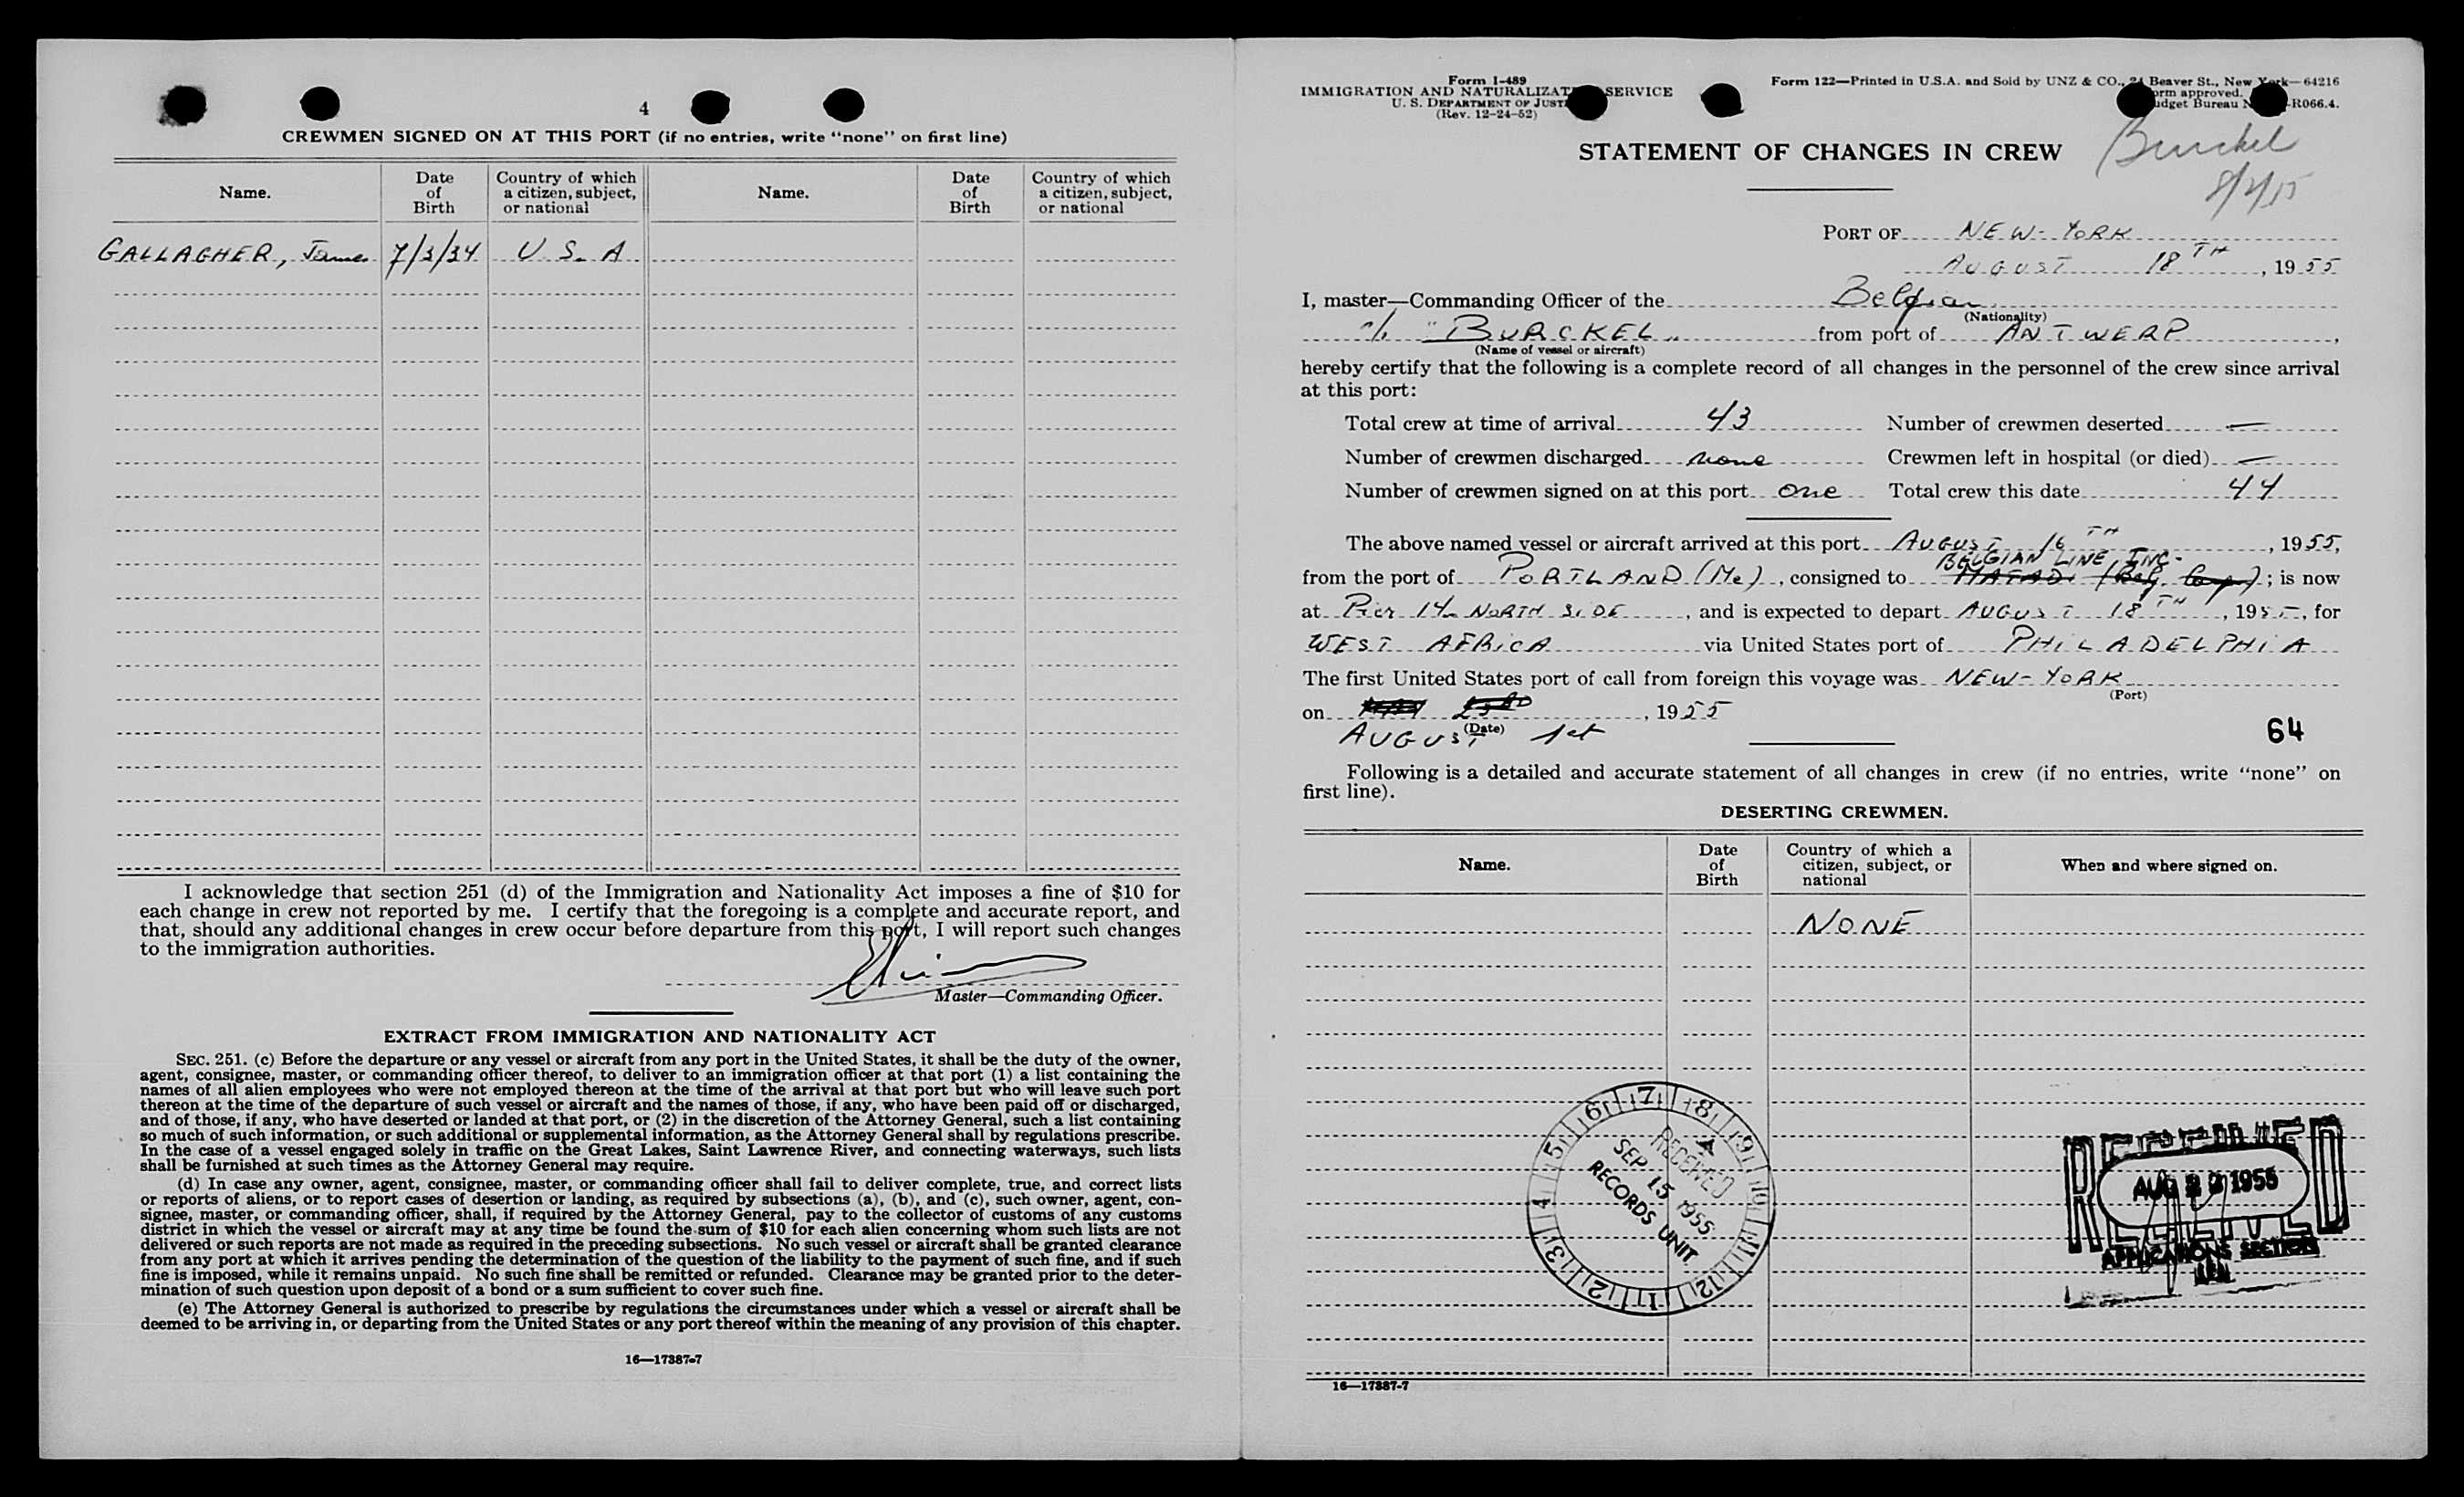 4
CREWMEN SIGNED ON AT THIS PORT (if no entries, write "none" on first line)
Name. Date of Birth Country of which a citizen, subject, or national Name. Date of Birth Country of which a citizen, subject, or national
GALLAGHER, James 7/3/34 U. S. A
I acknowledge that section 251 (d) of the Immigration and Nationality Act imposes a fine of $10 for
each change in crew not reported by me. I certify that the foregoing is a complete and accurate report, and
that, should any additional changes in crew occur before departure from this port, I will report such changes
to the immigration authorities.
Master—Commanding Officer.
EXTRACT FROM IMMIGRATION AND NATIONALITY ACT
SEC. 251. (c) Before the departure or any vessel or aircraft from any port in the United States, it shall be the duty of the owner,
agent, consignee, master, or commanding officer thereof, to deliver to an immigration officer at that port (1) a list containing the
names of all alien employees who were not employed thereon at the time of the arrival at that port but who will leave such port
thereon at the time of the departure of such vessel or aircraft and the names of those, if any, who have been paid off or discharged,
and of those, if any, who have deserted or landed at that port, or (2) in the discretion of the Attorney General, such a list containing
so much of such information, or such additional or supplemental information, as the Attorney General shall by regulations prescribe.
In the case of a vessel engaged solely in traffic on the Great Lakes, Saint Lawrence River, and connecting waterways, such lists
shall be furnished at such times as the Attorney General may require.
(d) In case any owner, agent, consignee, master, or commanding officer shall fail to deliver complete, true, and correct lists
or reports of aliens, or to report cases of desertion or landing, as required by subsections (a), (b), and (c), such owner, agent, con-
signee, master, or commanding officer, shall, if required by the Attorney General, pay to the collector of customs of any customs
district in which the vessel or aircraft may at any time be found the sum of $10 for each alien concerning whom such lists are not
delivered or such reports are not made as required in the preceding subsections. No such vessel or aircraft shall be granted clearance
from any port at which it arrives pending the determination of the question of the liability to the payment of such fine, and if such
fine is imposed, while it remains unpaid. No such fine shall be remitted or refunded. Clearance may be granted prior to the deter-
mination of such question upon deposit of a bond or a sum sufficient to cover such fine.
(e) The Attorney General is authorized to prescribe by regulations the circumstances under which a vessel or aircraft shall be
deemed to be arriving in, or departing from the United States or any port thereof within the meaning of any provision of this chapter.
16—17387-7
Form I-489
IMMIGRATION AND NATURALIZAT SERVICE
U. S. DEPARTMENT OF JUST
(Rev. 12-24-52)
Form 122—Printed in U.S.A. and Sold by UNZ & CO., 24 Beaver St., New York—64216
orm approved.
udget Bureau N R066.4.
STATEMENT OF CHANGES IN CREW
Burckel
PORT OF NEW-YORK
AUGUST 18TH, 1955
I, master—Commanding Officer of the Belgian
(Nationality)
"BURCKEL" from port of ANTWERP,
(Name of vessel or aircraft)
hereby certify that the following is a complete record of all changes in the personnel of the crew since arrival
at this port:
Total crew at time of arrival 43 Number of crewmen deserted —
Number of crewmen discharged none Crewmen left in hospital (or died) —
Number of crewmen signed on at this port one Total crew this date 44
The above named vessel or aircraft arrived at this port AUGUST 16TH, 1955,
BELGIAN LINE INC.
from the port of PORTLAND (Me), consigned to MATADI; is now
at Pier 14 NORTH SIDE, and is expected to depart AUGUST 18TH, 1955, for
WEST AFRICA via United States port of PHILADELPHIA
The first United States port of call from foreign this voyage was NEW-YORK
(Port)
on , 1955
(Date)
AUGUST 1st
64
Following is a detailed and accurate statement of all changes in crew (if no entries, write "none" on
first line).
DESERTING CREWMEN.
Name. Date of Birth Country of which a citizen, subject, or national When and where signed on.
NONE
1 2 3 4 5 6 7 8 9 10 11 12
RECEIVED
SEP 15 1955
RECORDS UNIT
RECEIVED
AUG 1955
RECEIVED
APPLICATIONS SECTION
16—17387-7